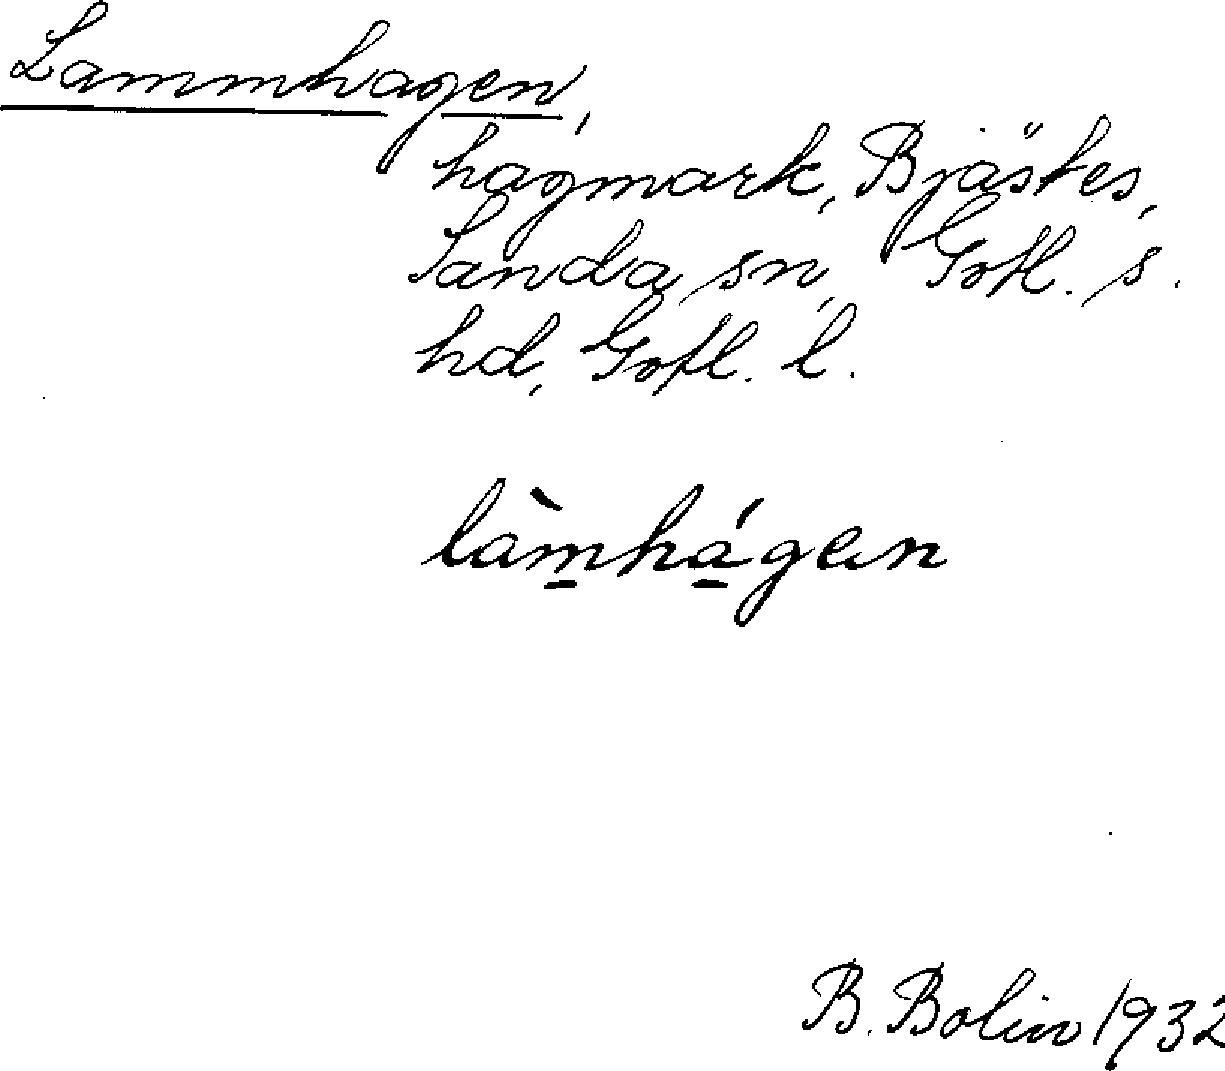 Lammhagen,
hagmark, Bjästes,
Sanda sn, Gotl. s.
hd, Gotl. l.
làm̲há̲gen
B. Bolin 1932